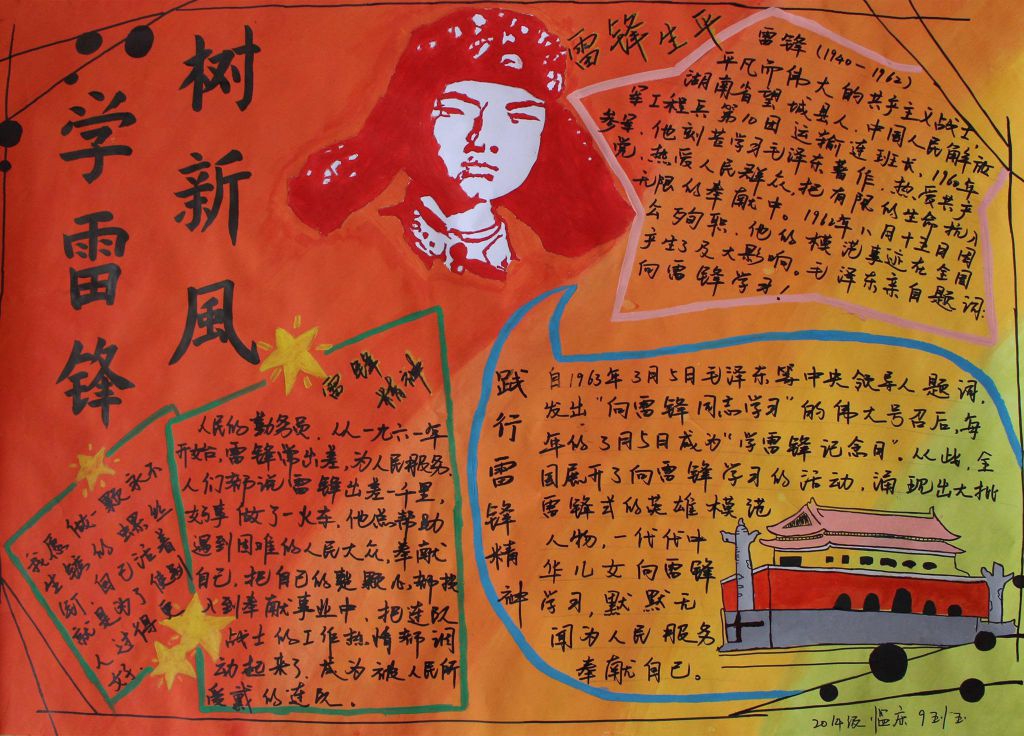 学雷锋
树新風
雷锋生平
雷锋(1940－1962)
平凡而伟大的共产主义战士
湖南省望城县人,中国人民解放
军工程兵第10团运输连班长、1960年
参军,他刻苦学习毛泽东著作,热爱共产
党,热爱人民群众,把有限的生命投入
无限的奉献中。1962年八月十五日因
公殉职,他的模范事迹在全国
产生了及大影响。毛泽东亲自题词:
向雷锋学习!
雷锋
精神
人民的勤务员.从一九六一年
开始,雷锋常出差,为人民服务.
人们都说雷锋出差一千里,
好事做了一火车.他总帮助
遇到困难的人民大众,奉献
自己.把自己的整颗心都投
入到奉献事业中.把连队
战士的工作热情都调
动起来了.成为被人民所
爱戴的连队.
我愿做一颗永不
生锈的螺丝
钉,自己活着
就是为了使别
人过得更
好.
践行雷锋精神
自1963年3月5日毛泽东等中央领导人题词,
发出“向雷锋同志学习”的伟大号召后,每
年的3月5日成为“学雷锋记念日”.从此,全
国展开了向雷锋学习的活动,涌现出大批
雷锋式的英雄模范
人物,一代代中
华儿女向雷锋
学习,默默无
闻为人民服务
奉献自己。
2014级